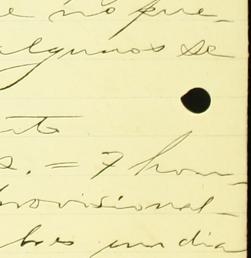 e no pue-
algunos se
to
s. = 7 hom-
provisional-
bes un dia